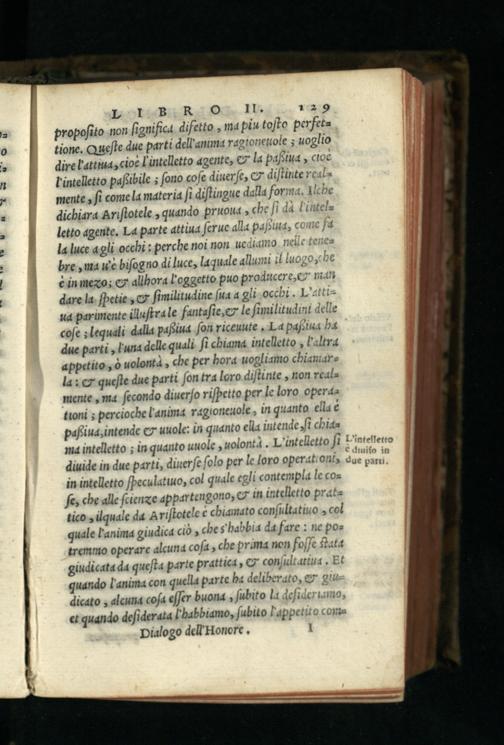 LIBRO II. 129
proposito non significa difetto, ma piu tosto perfet=
tione. Queste due parti dell'anima ragioneuole; uoglio
dire l'attiua, cioè l'intelletto agente, & la paßiua, cioè
l'intelletto paßibile; sono cose diuerse, & distinte real=
mente, si come la materia si distingue dalla forma. Ilche
dichiara Aristotele, quando pruoua, che si dà l'intel=
letto agente. La parte attiua serue alla paßiua, come fa
la luce a gli occhi: perche noi non uediamo nelle tene=
bre, ma u'è bisogno di luce, laquale allumi il luogo, che
è in mezo; & allhora l'oggetto puo producere, & man
dare la spetie, & similitudine sua a gli occhi. L'atti=
ua parimente illustra le fantasie, & le similitudini delle
cose; lequali dalla paßiua son riceuute. La paßiua ha
due parti, l'una delle quali si chiama intelletto, l'altra
appetito, ò uolontà, che per hora uogliamo chiamar=
la: & queste due parti son tra loro distinte, non real=
mente, ma secondo diuerso rispetto per le loro opera=
tioni; percioche l'anima ragioneuole, in quanto ella è
paßiua, intende & uuole: in quanto ella intende, si chia=
ma intelletto; in quanto uuole, uolontà. L'intelletto si
diuide in due parti, diuerse solo per le loro operationi,
in intelletto speculatiuo, col quale egli contempla le co=
se, che alle scienze appartengono, & in intelletto prat=
tico, ilquale da Aristotele è chiamato consultatiuo, col
quale l'anima giudica ciò, che s'habbia da fare: ne po=
tremmo operare alcuna cosa, che prima non fosse stata
giudicata da questa parte prattica, & consultatiua. Et
quando l'anima con quella parte ha deliberato, & giu=
dicato, alcuna cosa esser buona, subito la desideriamo,
et quando desiderata l'habbiamo, subito l'appetito com=
Dialogo dell'Honore. I
L'intelletto
è diuiso in
due parti.